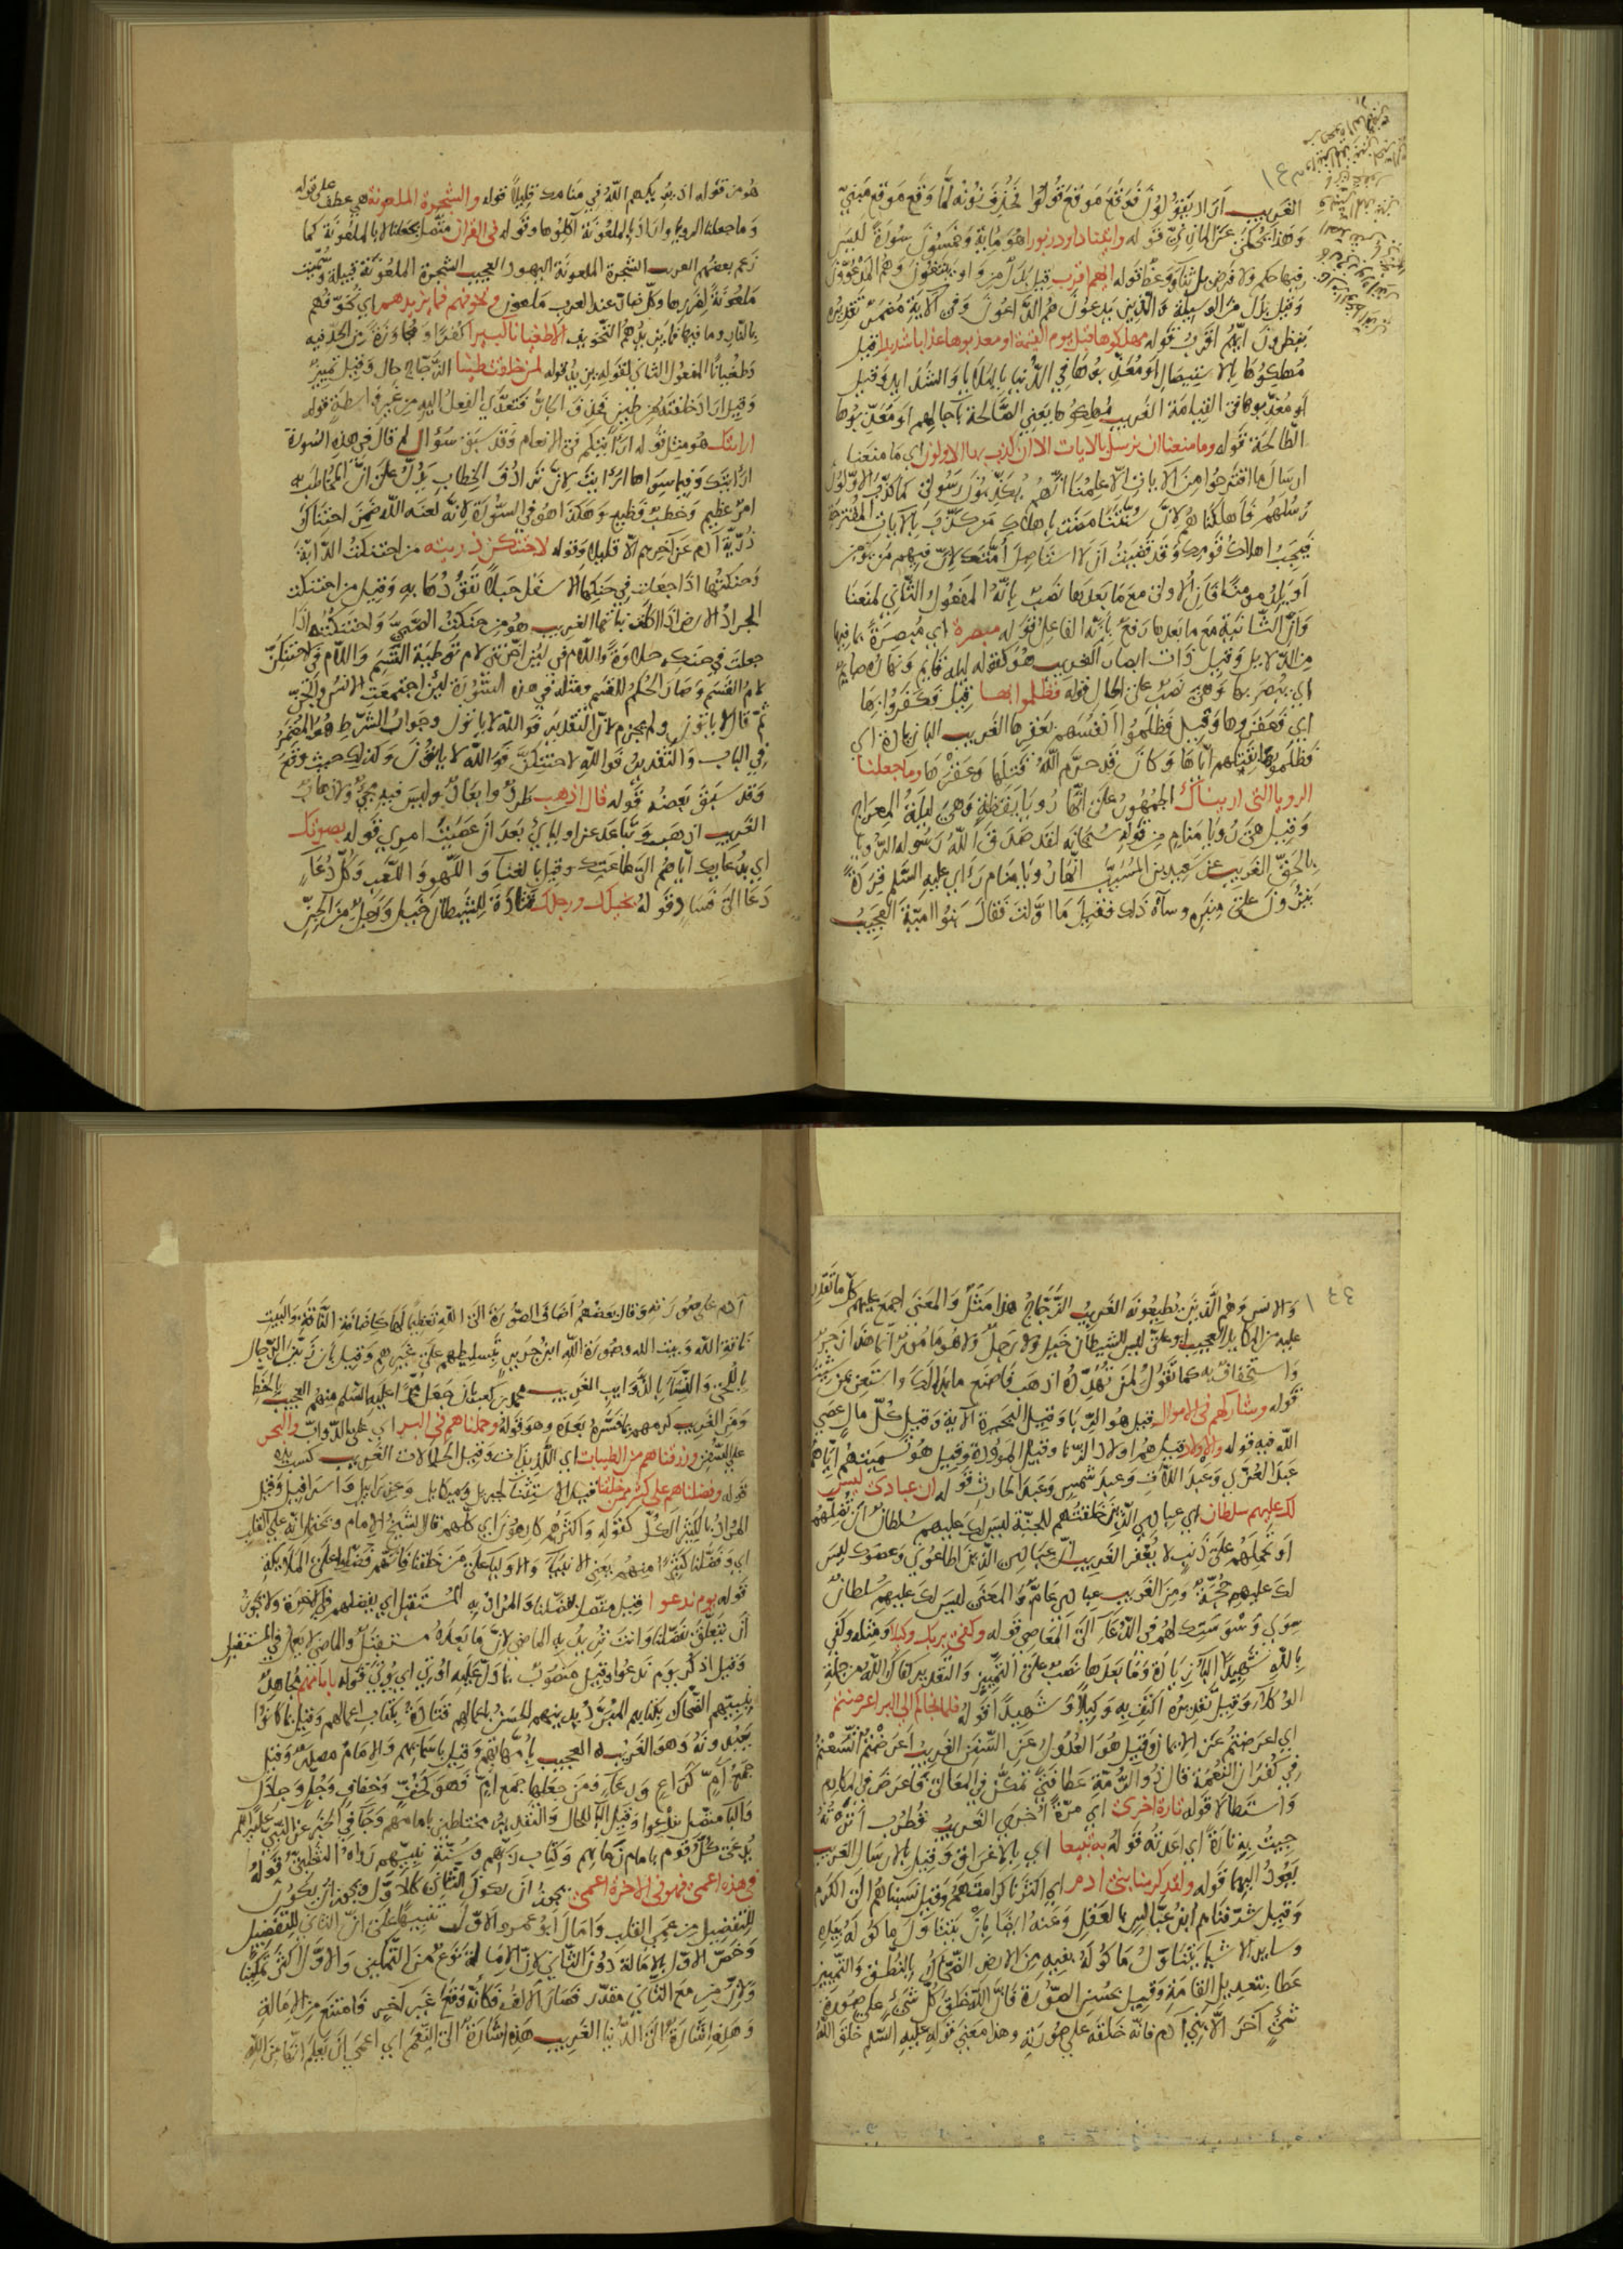 الغريب اراد يقولوا فوقع موقع قولوا فحذف نونه لما وقع موقع مبني
وهذا يحكى عن المازني قوله واتينا داود زبورا هو مائة وخمسون سورة ليس
فيها حكم ولا فرض بل ثناء ووعظ قوله ايهم اقرب قيل بدل من واو يبتغون وهم المدعوون
وقيل بدل من الوسيلة والذين يدعون هم الداعون وفي الاية مضمر تقديره
ينظرون ايهم اقرب قوله مهلكوها قبل يوم القيمة او معذبوها عذابا شديدا قيل
مهلكوها بالاستيصال او معذبوها في الدنيا بالبلايا والشدايد وقيل
او معذبوها في القيامة الغريب مهلكوها يعني الصالحة باجالهم او معذبوها
الطالحة قوله وما منعنا ان نرسل بالايات الا ان كذب بها الاولون اي ما منعنا
ارسال ما اقترحوا من الايات الا علمنا انهم يكذبون رسولي كما كذب الاولون
رسلهم فاهلكناهم لان سنتنا مضت باهلاك من كذب بالايات المقترحة
فيجب اهلاك قومك وقد قضيت ان لا استاصل امتك لان فيهم من يؤمن
او يلد مومنا فان الاولى مع ما بعدها نصب بانه المفعول الثاني لمنعنا
وان الثانية مع ما بعدها رفع بانه الفاعل قوله مبصرة اي مبصرة بما فيها
من الدلايل وقيل ذات ابصار الغريب هو كقوله ليله قايم ونهاره صايم
اي يبصر بها وهي نصب على الحال قوله فظلموا بها قيل فكفروا بها
اي فعقروها وقيل فظلموا انفسهم بعقرها الغريب الباء زيادة اي
فظلموها بقتلهم اياها وكان قد حرم الله قتلها وعقرها وما جعلنا
الرويا التي اريناك الجمهور على انها رويا يقظة وهي ليلة المعراج
وقيل هي رويا منام من قوله سبحانه لقد صدق الله رسوله الرويا
بالحق الغريب عن سعيد بن المسيب انها رويا منام راى عليه السلم قردة
ينزون على منبره وساءه ذلك فقيل ما اولت فقال بنو امية العجيب
هو من قوله اذ يريكهم الله في منامك قليلا قوله والشجرة الملعونة هي عطف على قوله
وما جعلنا الرويا واراد بالملعونة اكلوها وقوله في القران متصل بجعلنا لا بالملعونة كما
زعم بعضهم الغريب الشجرة الملعونة اليهود العجيب الشجرة الملعونة قبيلة وسميت
ملعونة لضررها وكل ضار عند العرب ملعون ونخوفهم فما يزيدهم اي نخوفهم
بالنار وما فيها فما يزيدهم التخويف الا طغيانا كبيرا كفرا ومجاوزة من الحد فيه
وطغيانا المفعول الثاني لقوله يزيد قوله لمن خلقت طينا الزجاج حال وقيل تمييز
وقيل اراد خلقته من طين فحذف الجار فتعدى الفعل اليه من غير واسطة قوله
ارايتك هو مثل قوله ارايتكم في الانعام وقد سبق سؤال لم قال في هذه السورة
ارايتك وفيما سواها ارايت لان ترادف الخطاب يدل على ان المخاطب به
امر عظيم وخطب فظيع وهكذا هو في السورة لانه لعنه الله ضمن احتناك
ذرية ادم عن اخرهم الا قليلا وقوله لاحتنكن ذريته من احتنكت الدابة
وحنكتها اذا جعلت في حنكها الاسفل حبلا تقودها به وقيل من احتنكت
الجراد الارض اذا اكلت نباتها الغريب هو من حنكت الصبي واحتنكته اذا
جعلت في حنكه حلاوة واللام في لئن اخرتني لام توطية القسم واللام في لاحتنكن
لام القسم وصار الحكم للقسم ومثله في هذه السورة لئن اجتمعت الانس والجن
ثم قال لا ياتون ولم يجزم لان التقدير فوالله لا ياتون وجواب الشرط هو المضمر
في الباب والتقدير فوالله لاحتنكن فوالله لا ياتون وكذلك حيث وقع
وقد سبق بعضه قوله قال اذهب طرد وابعاد وليس فيه مجيء ولا ذهاب
الغريب اذهب وتباعد عن اوليائي بعد ان عصيت امري قوله بصوتك
اي بدعايك اياهم الى طاعتك وقيل بالغناء واللهو واللعب وكل دعاء
دعا الى فساد قوله بخيلك ورجلك قتادة للشيطان خيل ورجل من الجن
والانس وهم الذين يطيعونه الغريب الزجاج هذا مثل والمعنى اجمع عليهم كل ما تقدر
عليه من المكايد العجيب ابو علي ليس للشيطان خيل ولا رجل ولا هو مامور انما هذا زجر
واستخفاف به كما تقول لمن تهدده اذهب فاصنع ما بدا لك واستعن بمن شئت
قوله وشاركهم في الاموال قيل هو الربا وقيل البحيرة الاية وقيل كل مال عصي
الله فيه قوله والاولاد قيل هم اولاد الزنا وقيل الموؤدة وقيل هو تسميتهم اياهم
عبد العزى وعبد اللات وعبد شمس وعبد الحارث قوله ان عبادي ليس
لك عليهم سلطان اي عبادي الذين خلقتهم للجنة ليس لك عليهم سلطان ان تضلهم
او تحملهم على ذنب لا يغفر الغريب ان عبادي الذين اطاعوني وعصوك ليس
لك عليهم حجة ومن الغريب عبادي عام والمعنى ليس لك عليهم سلطان
سوى وسوستك لهم في الدعاء الى المعاصي قوله وكفى بربك وكيلا ومثله وكفى
بالله شهيدا الباء زيادة وما بعدها نصب على التمييز والتقدير كفاك الله من جملة
الوكلاء وقيل تقديره اكتف به وكيلا وشهيدا قوله فلما نجاكم الى البر اعرضتم
اي اعرضتم عن الايمان وقيل هو العدول عن السفن الغريب اعرضتم اتسعتم
في كفران النعمة قال ذو الرمة عطاء فتى تمكن في المعالي فاعرض في المكارم
واستطالا قوله تارة اخرى اي مرة اخرى الغريب
جيت به تارة اي اعدته قوله به تبيعا اي بالاغراق وقيل بالارسال الغريب
يعود اليهما قوله ولقد كرمنا بني ادم اي اكثرنا كرامتهم وقيل نسبناهم الى الكرم
وقيل شرفناهم ابن عباس بالعقل وعنه ايضا بان يتناول ماكوله بيده
وساير الاشياء يتناول ماكوله بفيه من الارض الضحاك بالنطق والتمييز
عطاء بتعديل القامة وقيل بحسن الصورة فان الله خلق كل شيء على صورة
شيء اخر الا بني ادم فانه خلقه على صورته وهذا معنى قوله عليه السلم خلق الله
ادم على صورته وقال بعضهم اضاف الصورة الى الله تعظيما لها كاضافة الناقة والبيت
ناقة الله وبيت الله وصورة الله ابن جرير بتسليطهم على غيرهم وقيل بان زين الرجال
باللحى والنساء بالذوايب الغريب محمد بن كعب بان جعل محمدا عليه السلم منهم العجيب بالخط
ومن الغريب كرمهم بما فسره بعده وهو قوله وحملناهم في البر اي على الدواب والبحر
على السفن ورزقناهم من الطيبات اي اللذيذات وقيل الحلالات الغريب كسب يده
قوله وفضلناهم على كثير ممن خلقنا قيل الاستثناء لجبريل وميكايل وعزرايل واسرافيل وقيل
المراد بالكثير الكل كقوله واكثرهم كارهون اي كلهم قال الشيخ الامام ويحتمل انه على القلب
اي وفضلنا كثيرا منهم يعني الانبياء والاولياء على من خلقنا فانهم فضلوا على الملايكة
قوله يوم ندعوا قيل متصل بفضلنا والمراد به المستقبل اي يفضلهم في الاخرة ولا يجوز
ان يتعلق بفضلنا وانت تريد به الماضي لان ما بعده مستقبل والماضي لا يعمل في المستقبل
وقيل اذكر يوم ندعوا وقيل منصوب بما دل عليه اوتي اي يوتى قوله بامامهم مجاهد
بنبيهم الضحاك بكتابهم المنزل الحسن باعمالهم قتادة بكتاب اعمالهم وقيل بما كانوا
يعبدونه وهو الغريب العجيب بامهاتهم وقيل باسمايهم والامام مصدر وقيل
جمع ام كراع ورعاء فمن جعلها جمع ام فهو كخف وخفاف وجل وجلال
والباء متصل بندعوا وقيل الباء للحال والتقدير مختلطين بامامهم وجاء في الخبر عن النبي عليه السلم
يدعى كل قوم بامام زمانهم وكتاب ربهم وسنة نبيهم رواه الثعلبي قوله
في هذه اعمى فهو في الاخرة اعمى يجوز ان يكون الثاني كالاول ويجوز ان يكون
للتفضيل من عمى القلب وامال ابو عمرو الاول تنبيها على ان الثاني للتفضيل
وخص الاول بالامالة دون الثاني لان الامالة نوع من التمكين والاول اكثر تمكينا
ولان من مع الثاني مقدر فصار الالف فكانه وقع غير اخر فامتنع من الامالة
وهذه اشارة الى الدنيا الغريب هذه اشارة الى النعم اي اعمى ان يعلم انها من الله